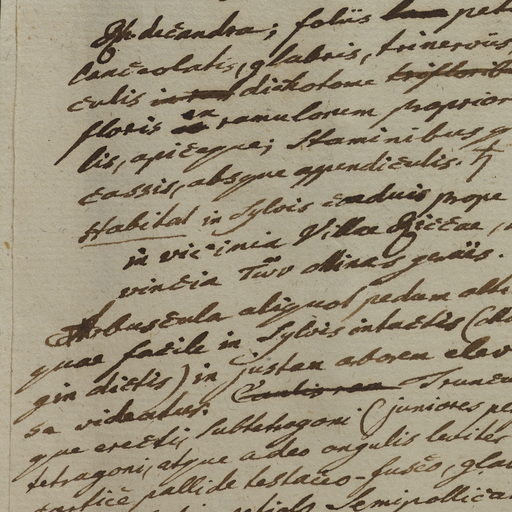 decandra; foliis pet
lanceolatis, glabris, trinerviis,
culis dichotome
floris en ramulorum proprior
lis, apiceque; staminibus q
cassis, absque appendiculis. †
Habitat in sylvis caeduis prope
in vicinia Villae Ricae,
vincia Tuv Minas geraës.
Arbuscula aliquot pedum alti
quae facile in Sylvis intactis (
gin dictis) in justam arborem elev
se videatur. Trunc
que erecti, subtetragoni (juniores pe
tetragoni, atque adeo angulis leviter
cortice pallide testaceo-fusco, gla
semipollica